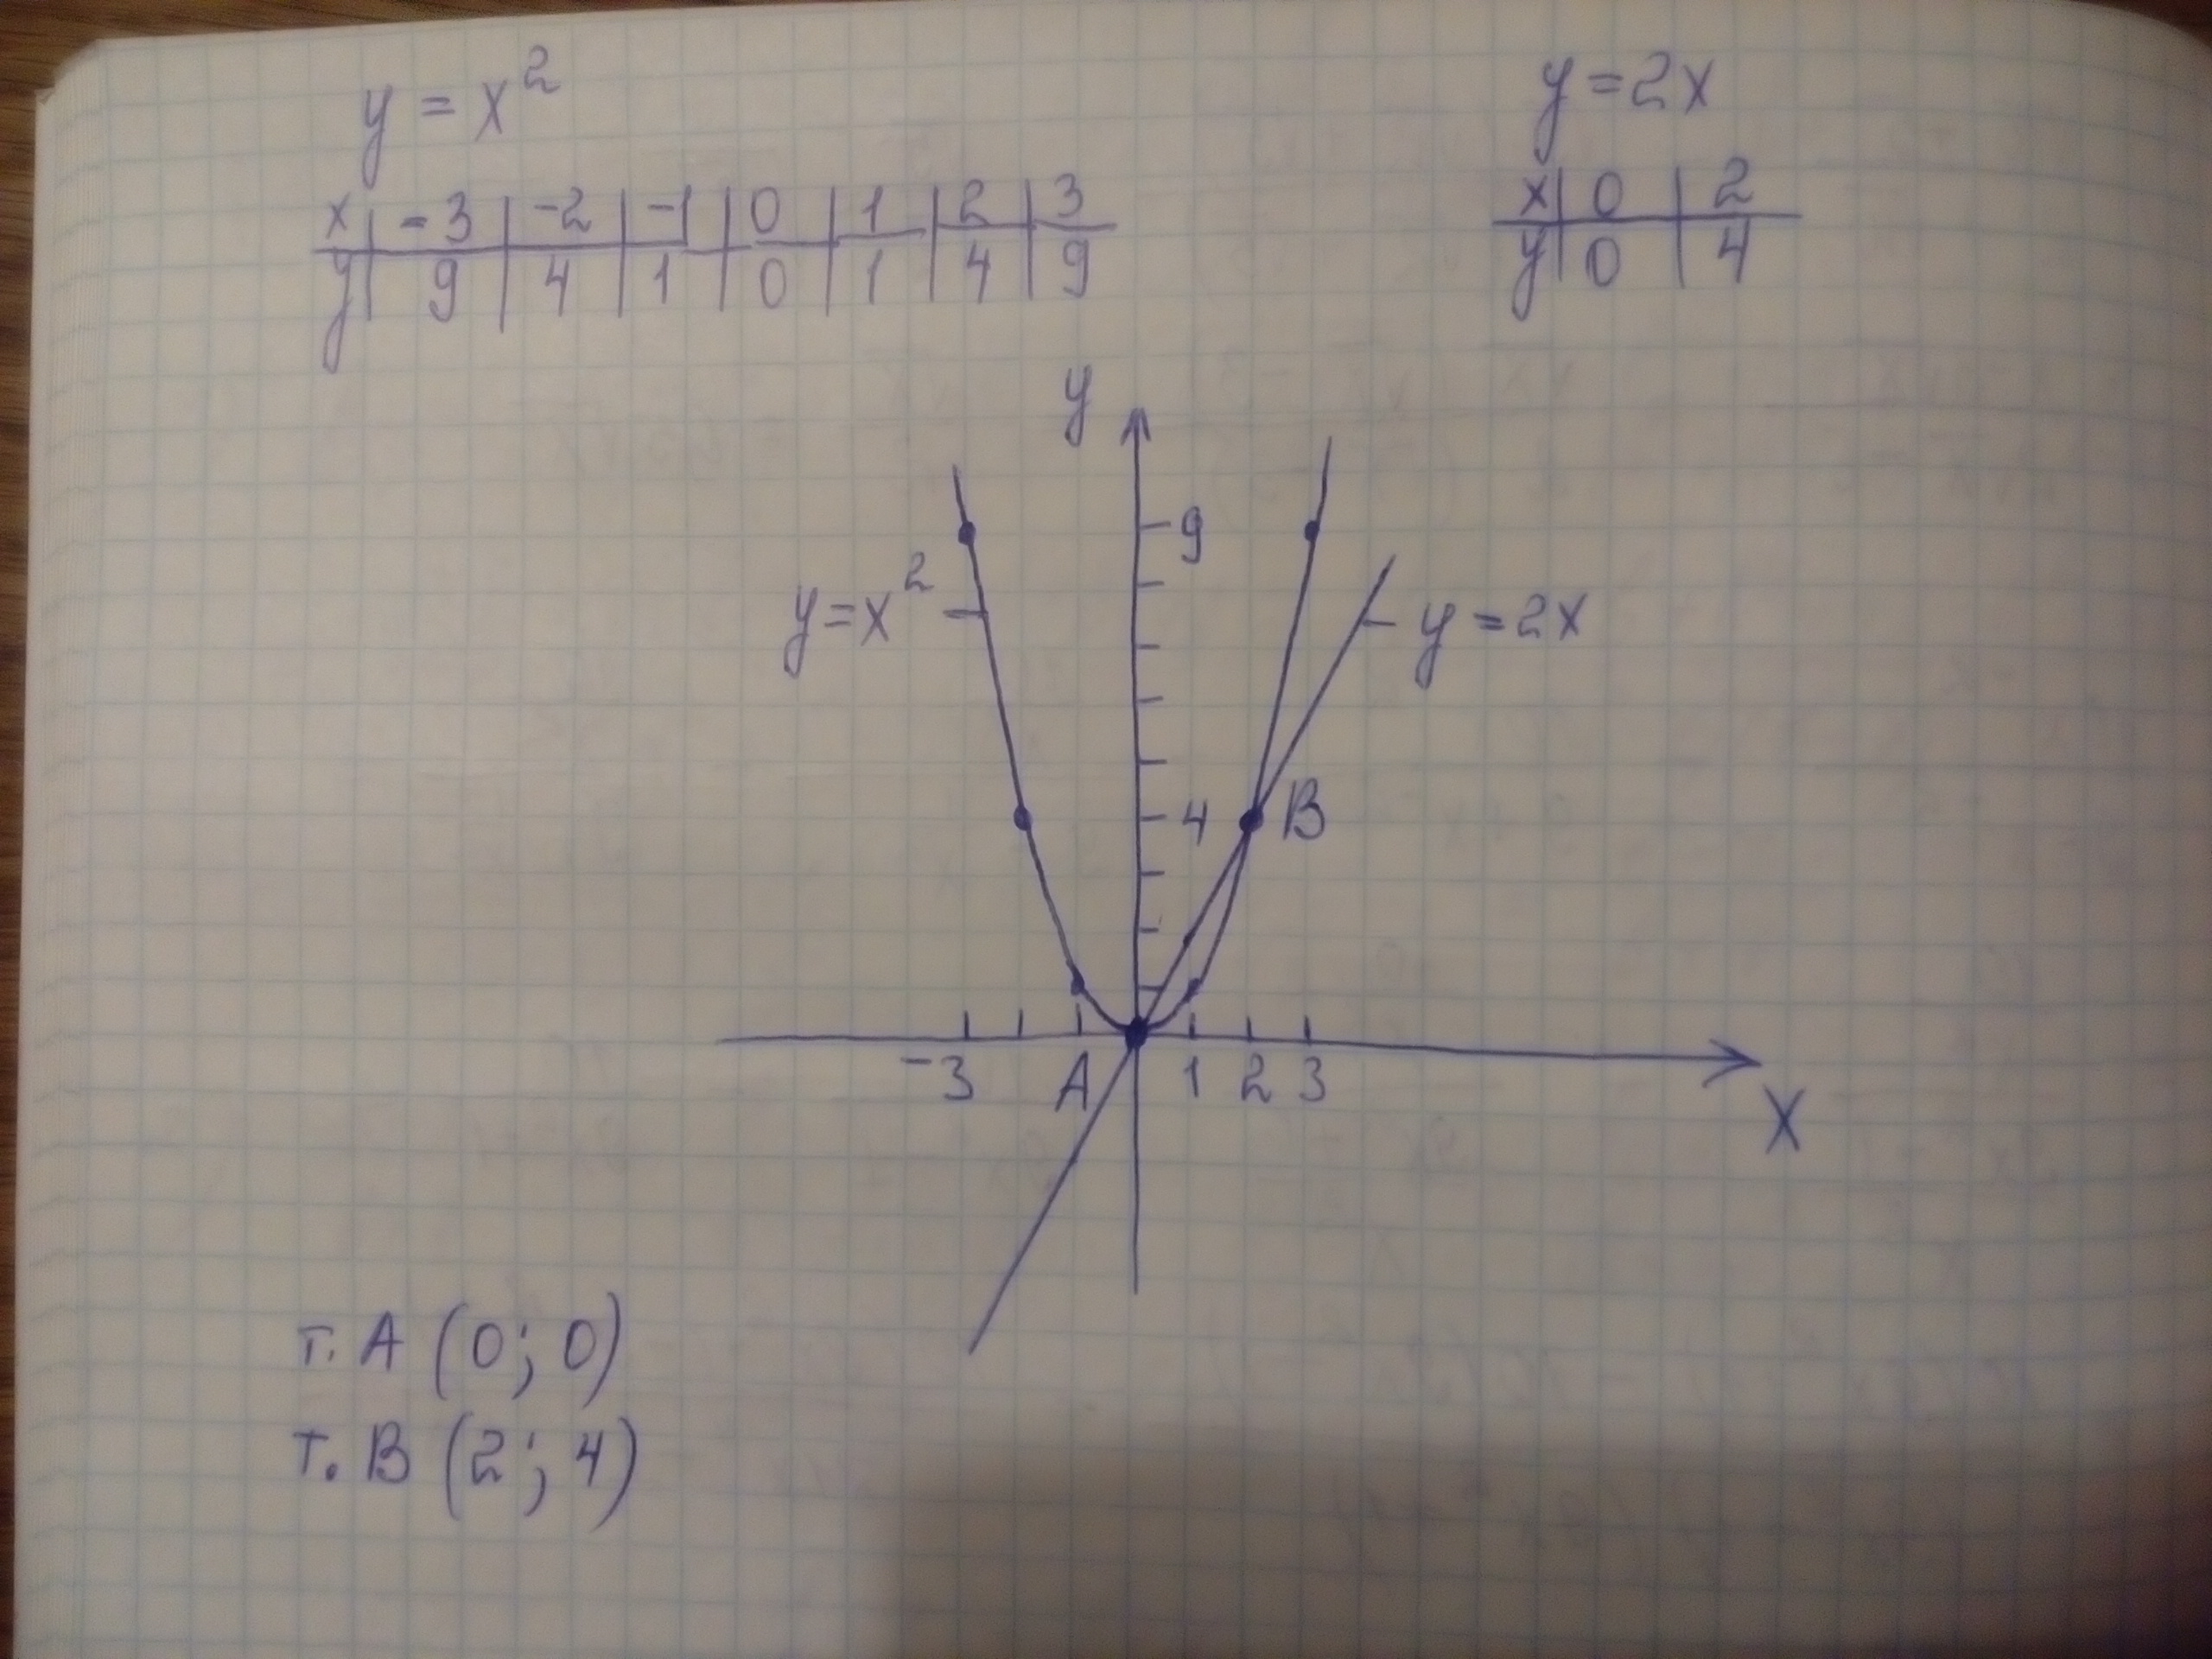 y = x²
y = 2x
x | -3 | -2 | -1 | 0 | 1 | 2 | 3
y | 9 | 4 | 1 | 0 | 1 | 4 | 9
x | 0 | 2
y | 0 | 4
y
9
y = x²
y = 2x
4
B
-3
A
1 2 3
X
т. A (0; 0)
т. B (2; 4)